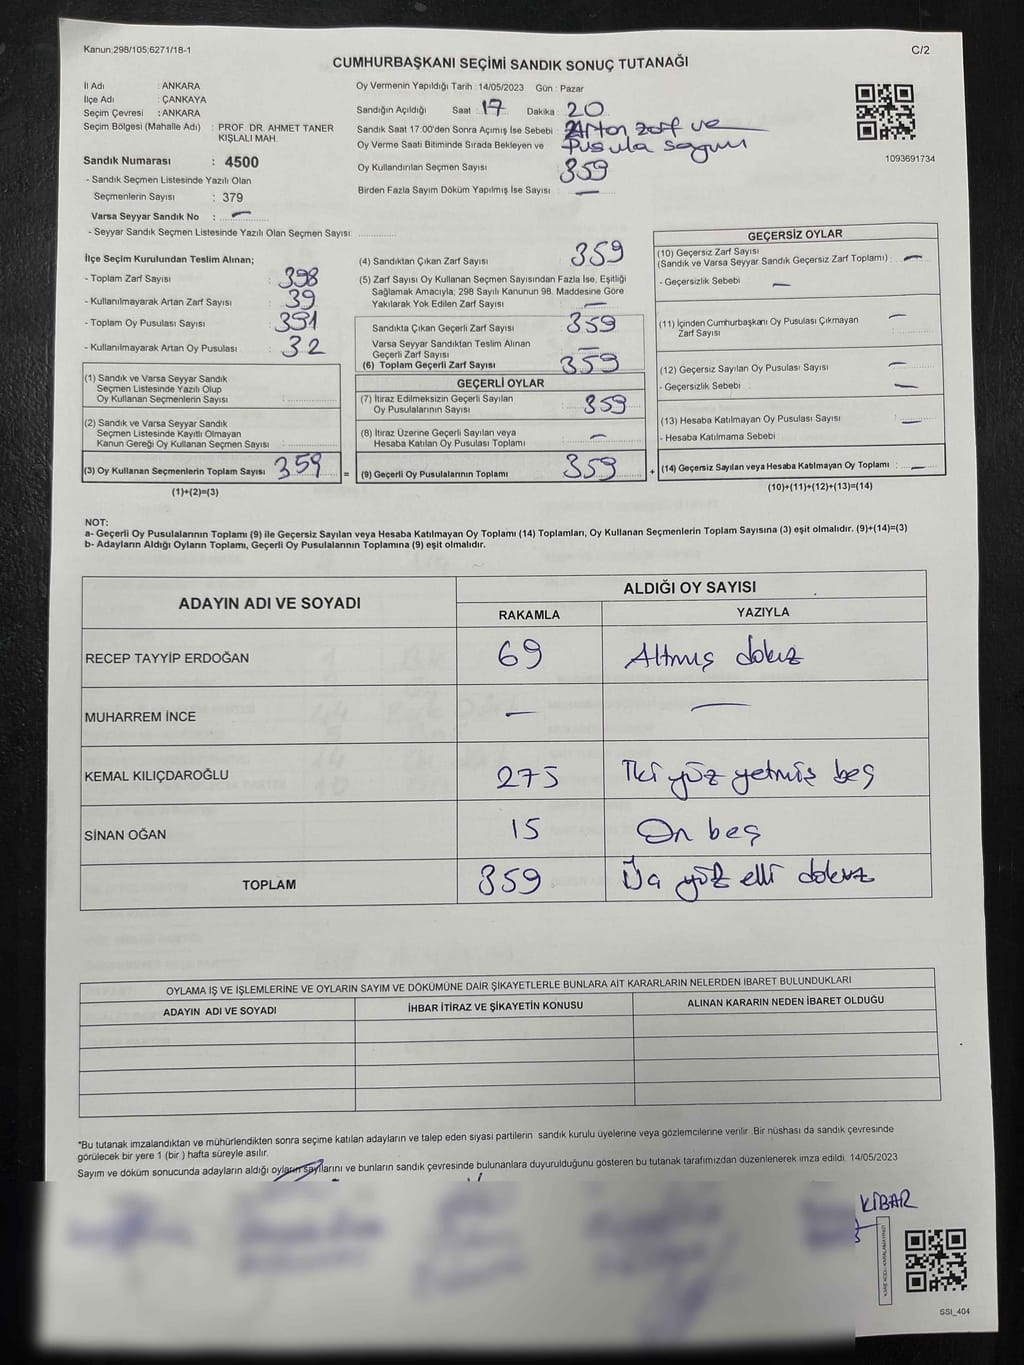 Kanun;298/105,6271/18-1
C/2
CUMHURBAŞKANI SEÇİMİ SANDIK SONUÇ TUTANAĞI
İl Adı : ANKARA
İlçe Adı : ÇANKAYA
Seçim Çevresi : ANKARA
Seçim Bölgesi (Mahalle Adı) : PROF. DR. AHMET TANER KIŞLALI MAH.
Sandık Numarası : 4500
- Sandık Seçmen Listesinde Yazılı Olan
Seçmenlerin Sayısı : 379
Varsa Seyyar Sandık No : —
- Seyyar Sandık Seçmen Listesinde Yazılı Olan Seçmen Sayısı:
Oy Vermenin Yapıldığı Tarih : 14/05/2023 Gün : Pazar
Sandığın Açıldığı Saat : 17 Dakika : 20
Sandık Saat 17:00'den Sonra Açımış İse Sebebi : Artan zarf ve
Oy Verme Saati Bitiminde Sırada Bekleyen ve pusula sayımı
Oy Kullandırılan Seçmen Sayısı 359
Birden Fazla Sayım Döküm Yapılmış İse Sayısı : —
1093691734
İlçe Seçim Kurulundan Teslim Alınan;
- Toplam Zarf Sayısı : 398
- Kullanılmayarak Artan Zarf Sayısı : 39
- Toplam Oy Pusulası Sayısı : 391
- Kullanılmayarak Artan Oy Pusulası : 32
(1) Sandık ve Varsa Seyyar Sandık
Seçmen Listesinde Yazılı Olup
Oy Kullanan Seçmenlerin Sayısı :
(2) Sandık ve Varsa Seyyar Sandık
Seçmen Listesinde Kayıtlı Olmayan
Kanun Gereği Oy Kullanan Seçmen Sayısı :
(3) Oy Kullanan Seçmenlerin Toplam Sayısı : 359 =
(1)+(2)=(3)
(4) Sandıktan Çıkan Zarf Sayısı 359
(5) Zarf Sayısı Oy Kullanan Seçmen Sayısından Fazla İse, Eşitliği
Sağlamak Amacıyla, 298 Sayılı Kanunun 98. Maddesine Göre
Yakılarak Yok Edilen Zarf Sayısı : —
Sandıkta Çıkan Geçerli Zarf Sayısı : 359
Varsa Seyyar Sandıktan Teslim Alınan
Geçerli Zarf Sayısı : —
(6) Toplam Geçerli Zarf Sayısı : 359
GEÇERLİ OYLAR
(7) İtiraz Edilmeksizin Geçerli Sayılan
Oy Pusulalarının Sayısı : 359
(8) İtiraz Üzerine Geçerli Sayılan veya
Hesaba Katılan Oy Pusulası Toplamı : —
(9) Geçerli Oy Pusulalarının Toplamı : 359 +
GEÇERSİZ OYLAR
(10) Geçersiz Zarf Sayısı
(Sandık ve Varsa Seyyar Sandık Geçersiz Zarf Toplamı) : —
- Geçersizlik Sebebi : —
(11) İçinden Cumhurbaşkanı Oy Pusulası Çıkmayan
Zarf Sayısı : —
(12) Geçersiz Sayılan Oy Pusulası Sayısı : —
- Geçersizlik Sebebi : —
(13) Hesaba Katılmayan Oy Pusulası Sayısı : —
- Hesaba Katılmama Sebebi :
(14) Geçersiz Sayılan veya Hesaba Katılmayan Oy Toplamı : —
(10)+(11)+(12)+(13)=(14)
NOT:
a- Geçerli Oy Pusulalarının Toplamı (9) ile Geçersiz Sayılan veya Hesaba Katılmayan Oy Toplamı (14) Toplamları, Oy Kullanan Seçmenlerin Toplam Sayısına (3) eşit olmalıdır. (9)+(14)=(3)
b- Adayların Aldığı Oyların Toplamı, Geçerli Oy Pusulalarının Toplamına (9) eşit olmalıdır.
ADAYIN ADI VE SOYADI ALDIĞI OY SAYISI
RAKAMLA YAZIYLA
RECEP TAYYİP ERDOĞAN 69 Altmış dokuz
MUHARREM İNCE — —
KEMAL KILIÇDAROĞLU 275 İki yüz yetmiş beş
SİNAN OĞAN 15 On beş
TOPLAM 359 Üç yüz elli dokuz
OYLAMA İŞ VE İŞLEMLERİNE VE OYLARIN SAYIM VE DÖKÜMÜNE DAİR ŞİKAYETLERLE BUNLARA AİT KARARLARIN NELERDEN İBARET BULUNDUKLARI
ADAYIN ADI VE SOYADI İHBAR İTİRAZ VE ŞİKAYETİN KONUSU ALINAN KARARIN NEDEN İBARET OLDUĞU
*Bu tutanak imzalandıktan ve mühürlendikten sonra seçime katılan adayların ve talep eden siyasi partilerin sandık kurulu üyelerine veya gözlemcilerine verilir. Bir nüshası da sandık çevresinde
görülecek bir yere 1 (bir ) hafta süreyle asılır.
Sayım ve döküm sonucunda adayların aldığı oyların sayılarını ve bunların sandık çevresinde bulunanlara duyurulduğunu gösteren bu tutanak tarafımızdan düzenlenerek imza edildi. 14/05/2023
KİBAR
KARE KODU KARALAMAYINIZ!
SSI_404